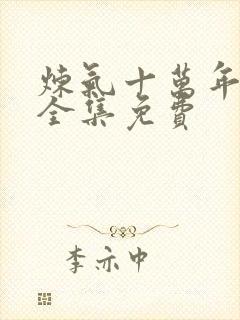 煉氣十萬年
全集免費
李亦中